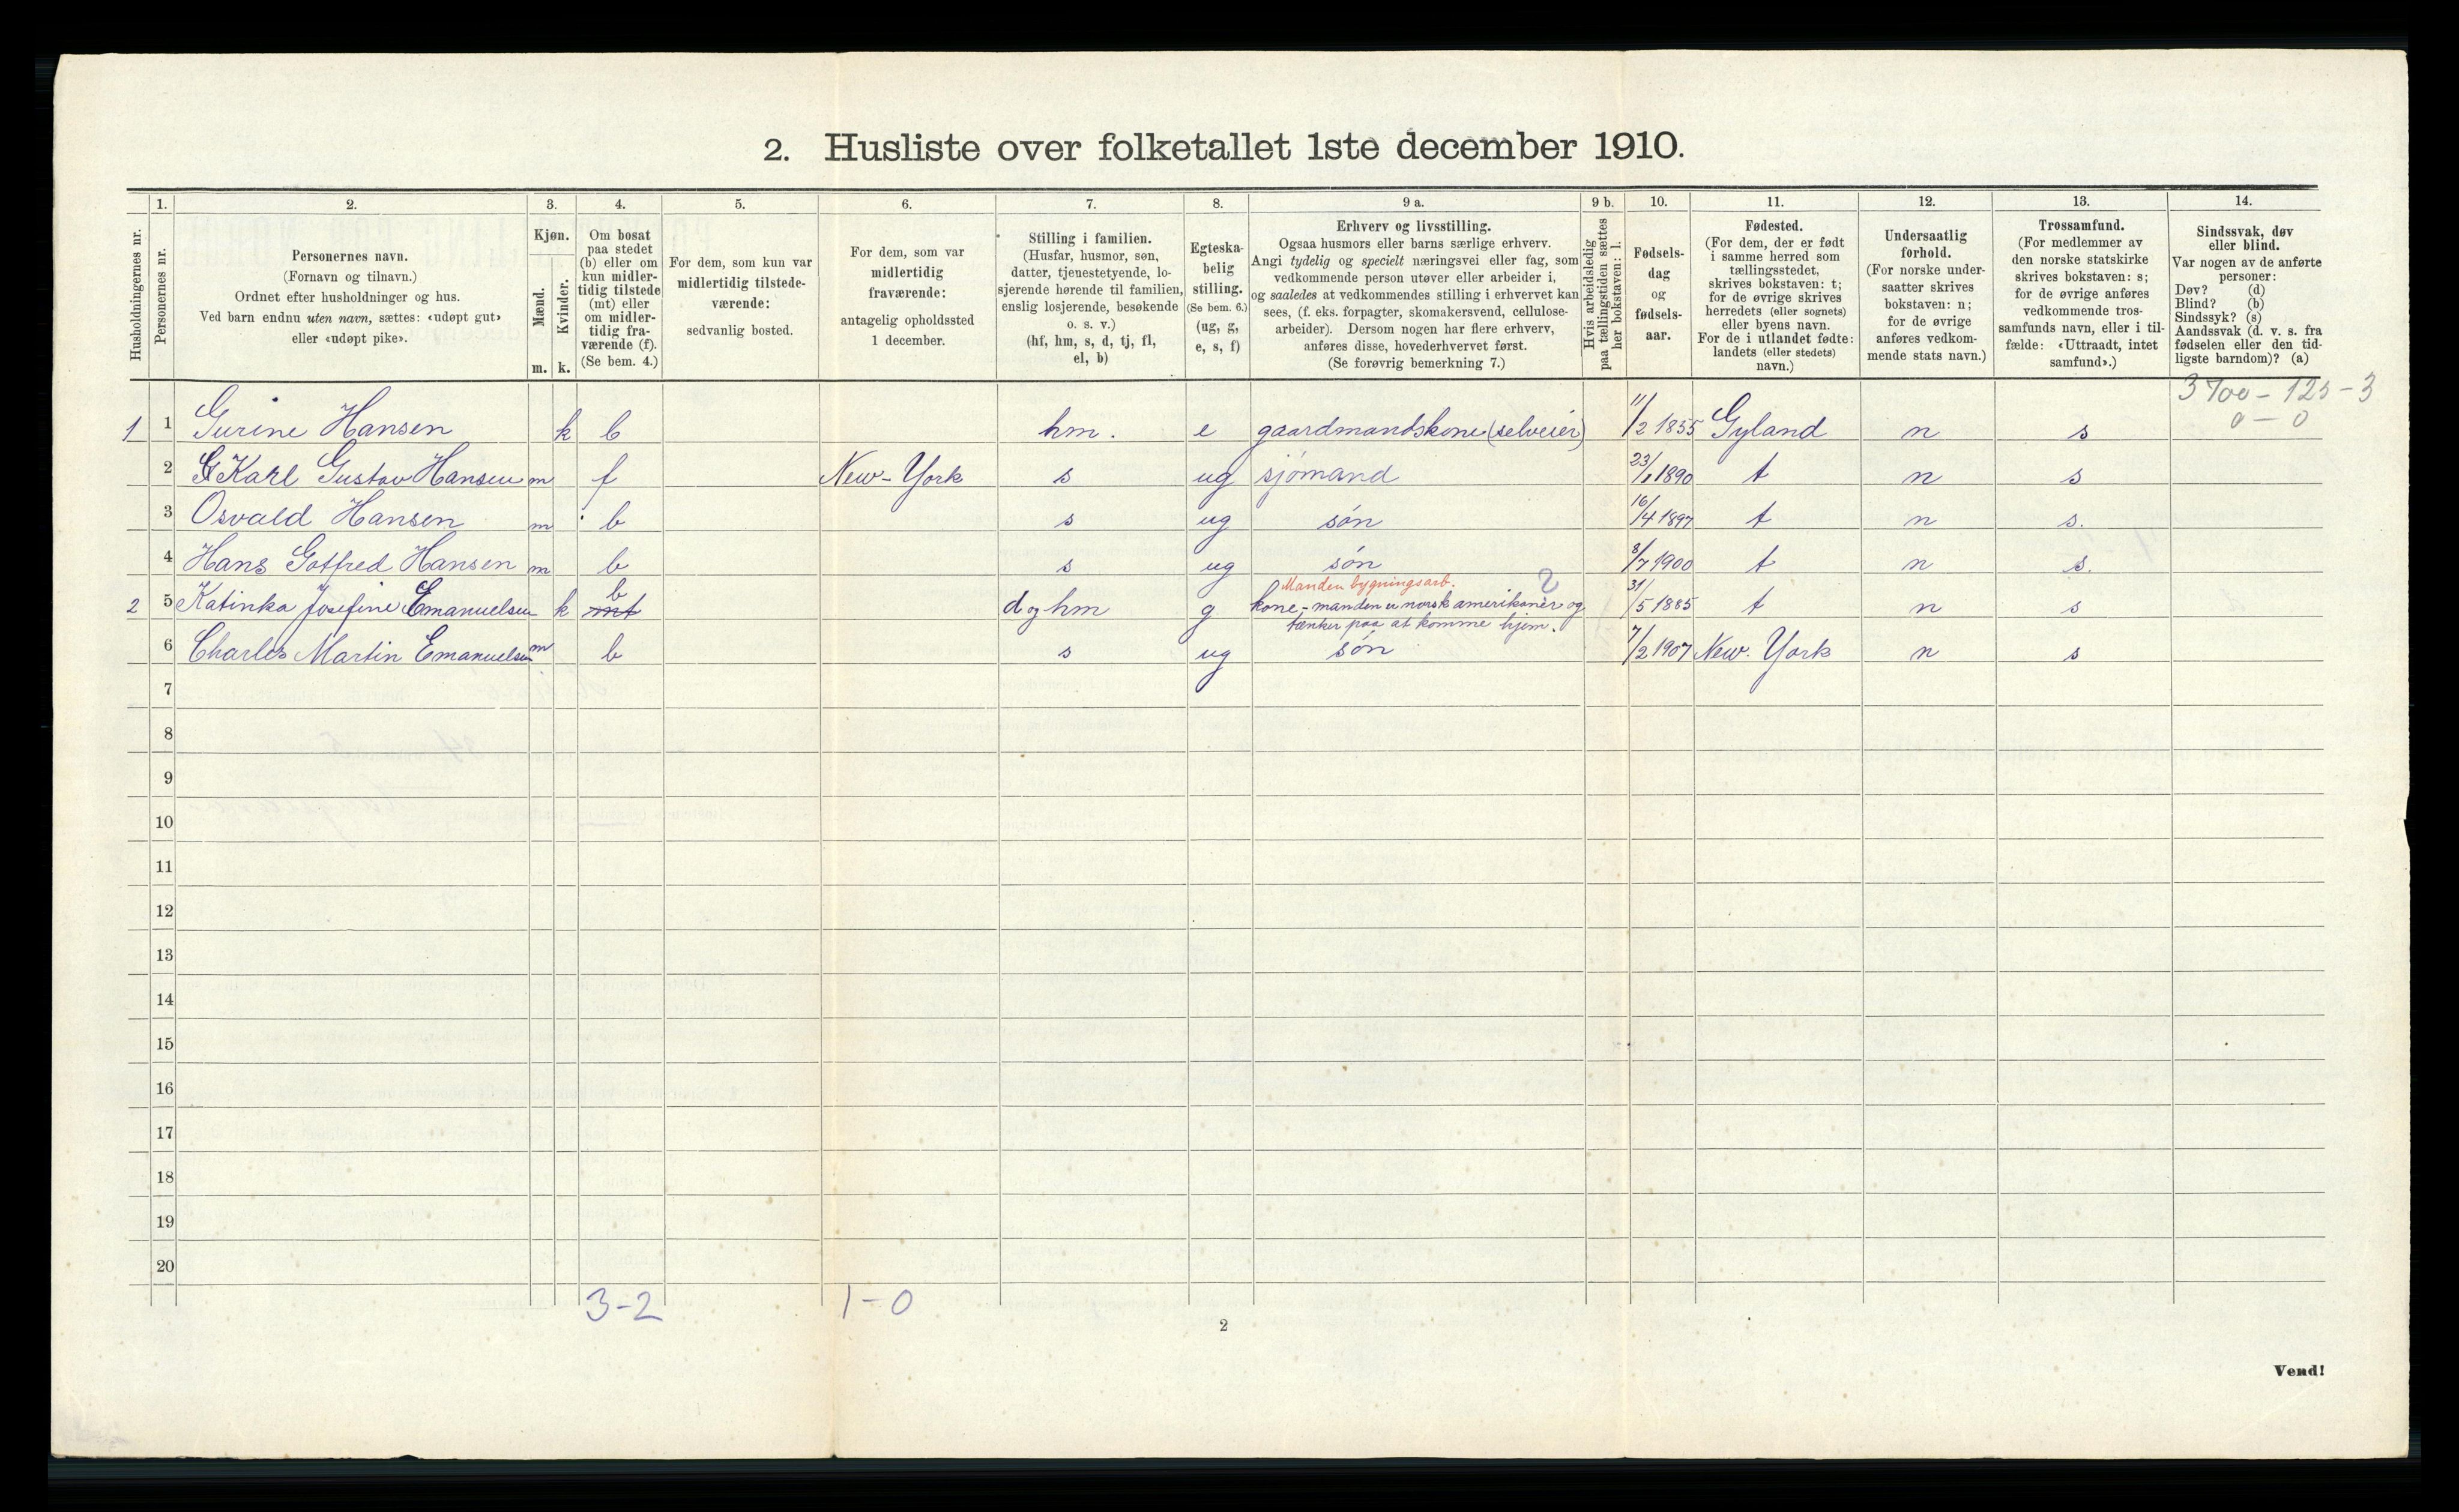 2. Husliste over folketallet 1ste december 1910.
1. 2. 3. 4. 5. 6. 7. 8. 9 a. 9 b. 10. 11. 12. 13. 14.
Husholdningernes nr.
Personernes nr.
Personernes navn.
(Fornavn og tilnavn.)
Ordnet efter husholdninger og hus.
Ved barn endnu uten navn, sættes: «udøpt gut»
eller «udøpt pike».
Kjøn.
Mænd.
Kvinder.
m. k.
Om bosat
paa stedet
(b) eller om
kun midler-
tidig tilstede
(mt) eller
om midler-
tidig fra-
værende (f).
(Se bem. 4.)
For dem, som kun var
midlertidig tilstede-
værende:
sedvanlig bosted.
For dem, som var
midlertidig
fraværende:
antagelig opholdssted
1 december.
Stilling i familien.
(Husfar, husmor, søn,
datter, tjenestetyende, lo-
sjerende hørende til familien,
enslig losjerende, besøkende
o. s. v.)
(hf, hm, s, d, tj, fl,
el, b)
Egteska-
belig
stilling.
(Se bem. 6.)
(ug, g,
e, s, f)
Erhverv og livsstilling.
Ogsaa husmors eller barns særlige erhverv.
Angi tydelig og specielt næringsvei eller fag, som
vedkommende person utøver eller arbeider i,
og saaledes at vedkommendes stilling i erhvervet kan
sees, (f. eks. forpagter, skomakersvend, cellulose-
arbeider). Dersom nogen har flere erhverv,
anføres disse, hovederhvervet først.
(Se forøvrig bemerkning 7.)
Hvis arbeidsledig
paa tællingstiden sættes
her bokstaven: l.
Fødsels-
dag
og
fødsels-
aar.
Fødested.
(For dem, der er født
i samme herred som
tællingsstedet,
skrives bokstaven: t;
for de øvrige skrives
herredets (eller sognets)
eller byens navn.
For de i utlandet fødte:
landets (eller stedets)
navn.)
Undersaatlig
forhold.
(For norske under-
saatter skrives
bokstaven: n;
for de øvrige
anføres vedkom-
mende stats navn.)
Trossamfund.
(For medlemmer av
den norske statskirke
skrives bokstaven: s;
for de øvrige anføres
vedkommende tros-
samfunds navn, eller i til-
fælde: «Uttraadt, intet
samfund».)
Sindssvak, døv
eller blind.
Var nogen av de anførte
personer:
Døv? (d)
Blind? (b)
Sindssyk? (s)
Aandssvak (d. v. s. fra
fødselen eller den tid-
ligste barndom)? (a)
3700 - 125 - 3
0 - 0
1 1 Gurine Hansen k b hm. e gaardmandskone (selveier) 11/2 1855 Gyland n s
2 Karl Gustav Hansen m f New-York s ug sjømand 23/1 1890 t n s
3 Osvald Hansen m b s ug søn 16/4 1897 t n s.
4 Hans Gotfred Hansen m b s ug søn 8/7 1900 t n s.
Manden bygningsarb. 2
2 5 Katinka Josefine Emanuelsen k mt b d og hm g kone, - manden er norsk amerikaner og 31/5 1885 t n s
tænker paa at komme hjem.
6 Charles Martin Emanuelsen m b s ug søn 7/2 1907 New. York n s
7
8
9
10
11
12
13
14
15
16
17
18
19
20
3-2 1-0
2
Vend!